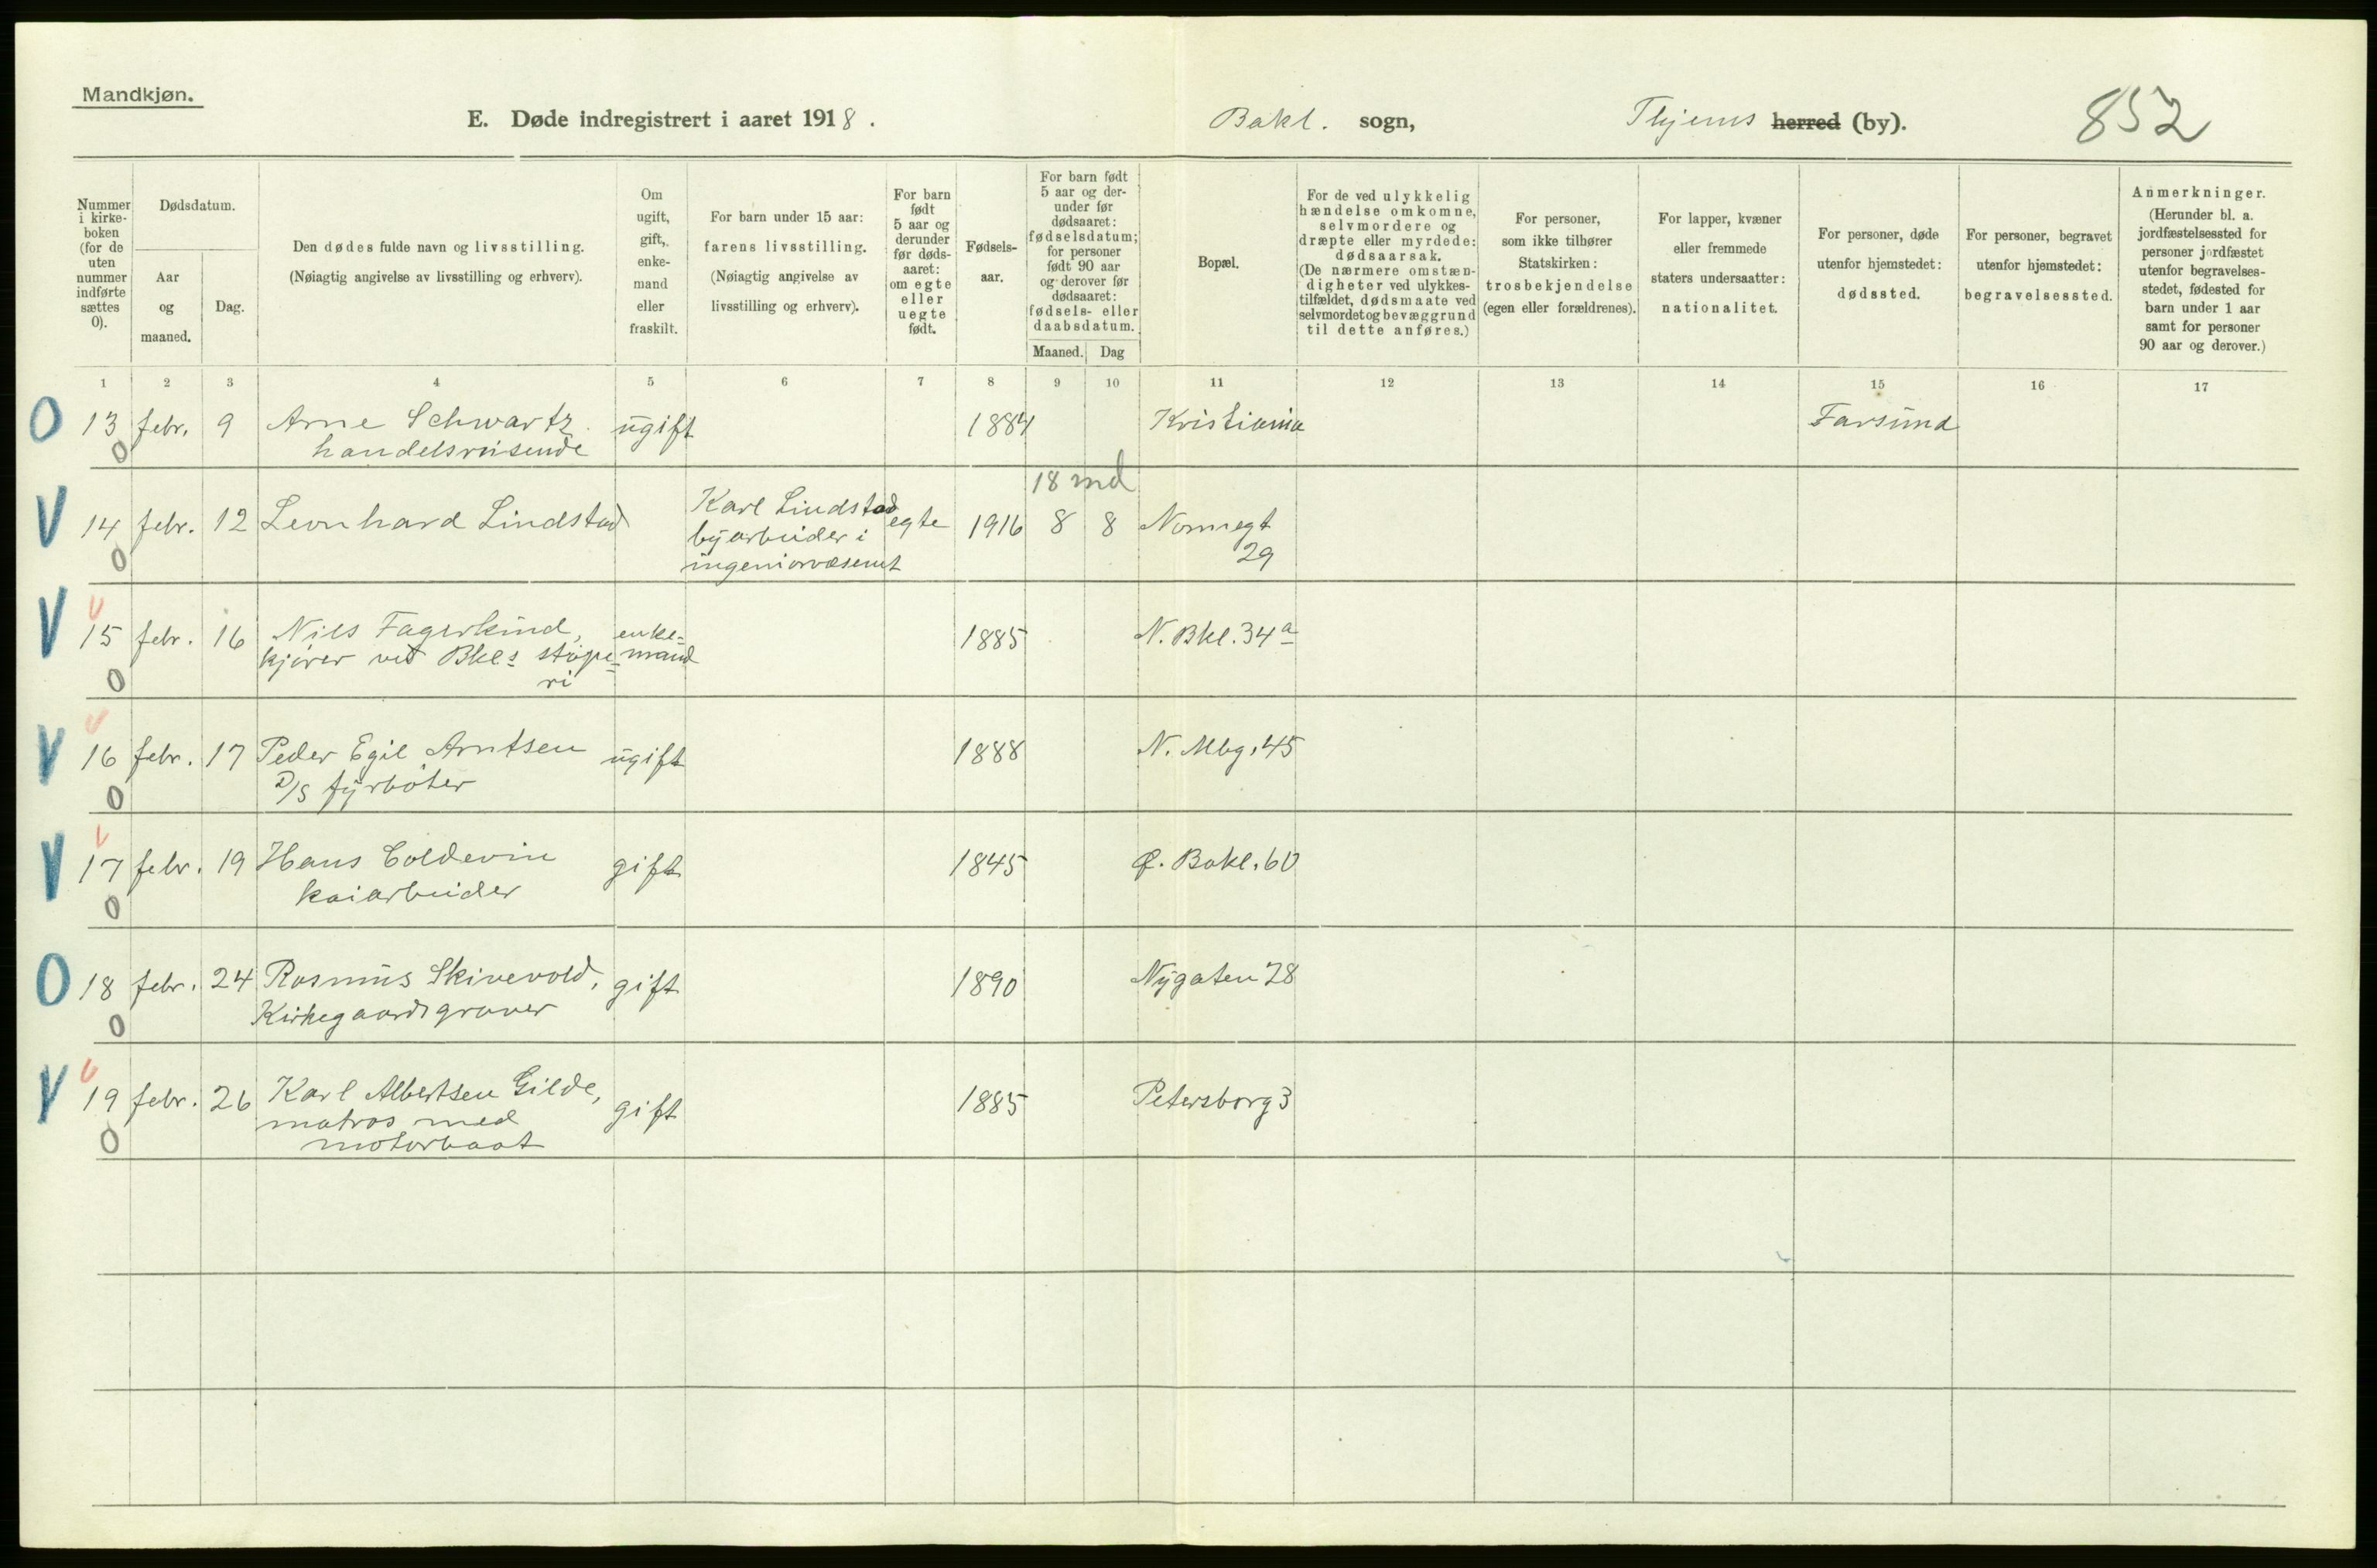 Mandkjøn.
E. Døde indregistrert i aaret 1918. Bakl. sogn, Thjems herred (by). 852
Nummer i kirkeboken (for de uten nummer indførte sættes 0).
Dødsdatum.
Aar og maaned.
Dag.
Den dødes fulde navn og livsstilling.
(Nøiagtig angivelse av livsstilling og erhverv).
Om ugift, gift, enkemand eller fraskilt.
For barn under 15 aar:
farens livsstilling.
(Nøiagtig angivelse av livsstilling og erhverv).
For barn født 5 aar og derunder før dødsaaret: om egte eller uegte født.
Fødselsaar.
For barn født 5 aar og derunder før dødsaaret: fødselsdatum; for personer født 90 aar og derover før dødsaaret: fødsels- eller daabsdatum.
Maaned. Dag
Bopæl.
For de ved ulykkelig hændelse omkomne, selvmordere og dræpte eller myrdede: dødsaarsak.
(De nærmere omstændigheter ved ulykkestilfældet, dødsmaate ved selvmordet og bevæggrund til dette anføres.)
For personer, som ikke tilhører Statskirken: trosbekjendelse (egen eller forældrenes).
For lapper, kvæner eller fremmede staters undersaatter: nationalitet.
For personer, døde utenfor hjemstedet: dødssted.
For personer, begravet utenfor hjemstedet: begravelsessted.
Anmerkninger.
(Herunder bl. a. jordfæstelsessted for personer jordfæstet utenfor begravelsesstedet, fødested for barn under 1 aar samt for personer 90 aar og derover.)
1 2 3 4 5 6 7 8 9 10 11 12 13 14 15 16 17
O 13 febr. 9 Arne Schwartz ugift 1884 Kristiania Farsund
0 handelsreisende
18 md
V 14 febr. 12 Leonhard Lindstad Karl Lindstad egte 1916 8 8 Nonnegt
byarbeider i 29
0 ingeniørvæsenet
V 15 febr. 16 Nils Fagerlund, enke= 1885 N. Bkl. 34a
kjører ved Bkls støpe= mand
0 ri
V 16 febr. 17 Peder Egil Arntsen ugift 1888 N. Mbg. 45
0 D/S fyrbøter
V 17 febr. 19 Hans Coldevin gift 1845 Ø. Bakl. 60
0 kaiarbeider
O 18 febr. 24 Rasmus Skivevold, gift 1890 Nygaten 28
0 Kirkegaardsgraver
V 19 febr. 26 Karl Albertsen Gilde, gift 1885 Petersborg 3
matros med
0 motorbaat